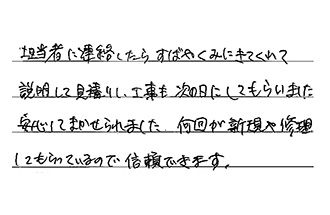 担当者に連絡したらすばやくみにきてくれて
説明して見積りし、工事も次の日にしてもらいました
安心してまかせられました。何回か新規や修理
してもらっているので信頼できます。